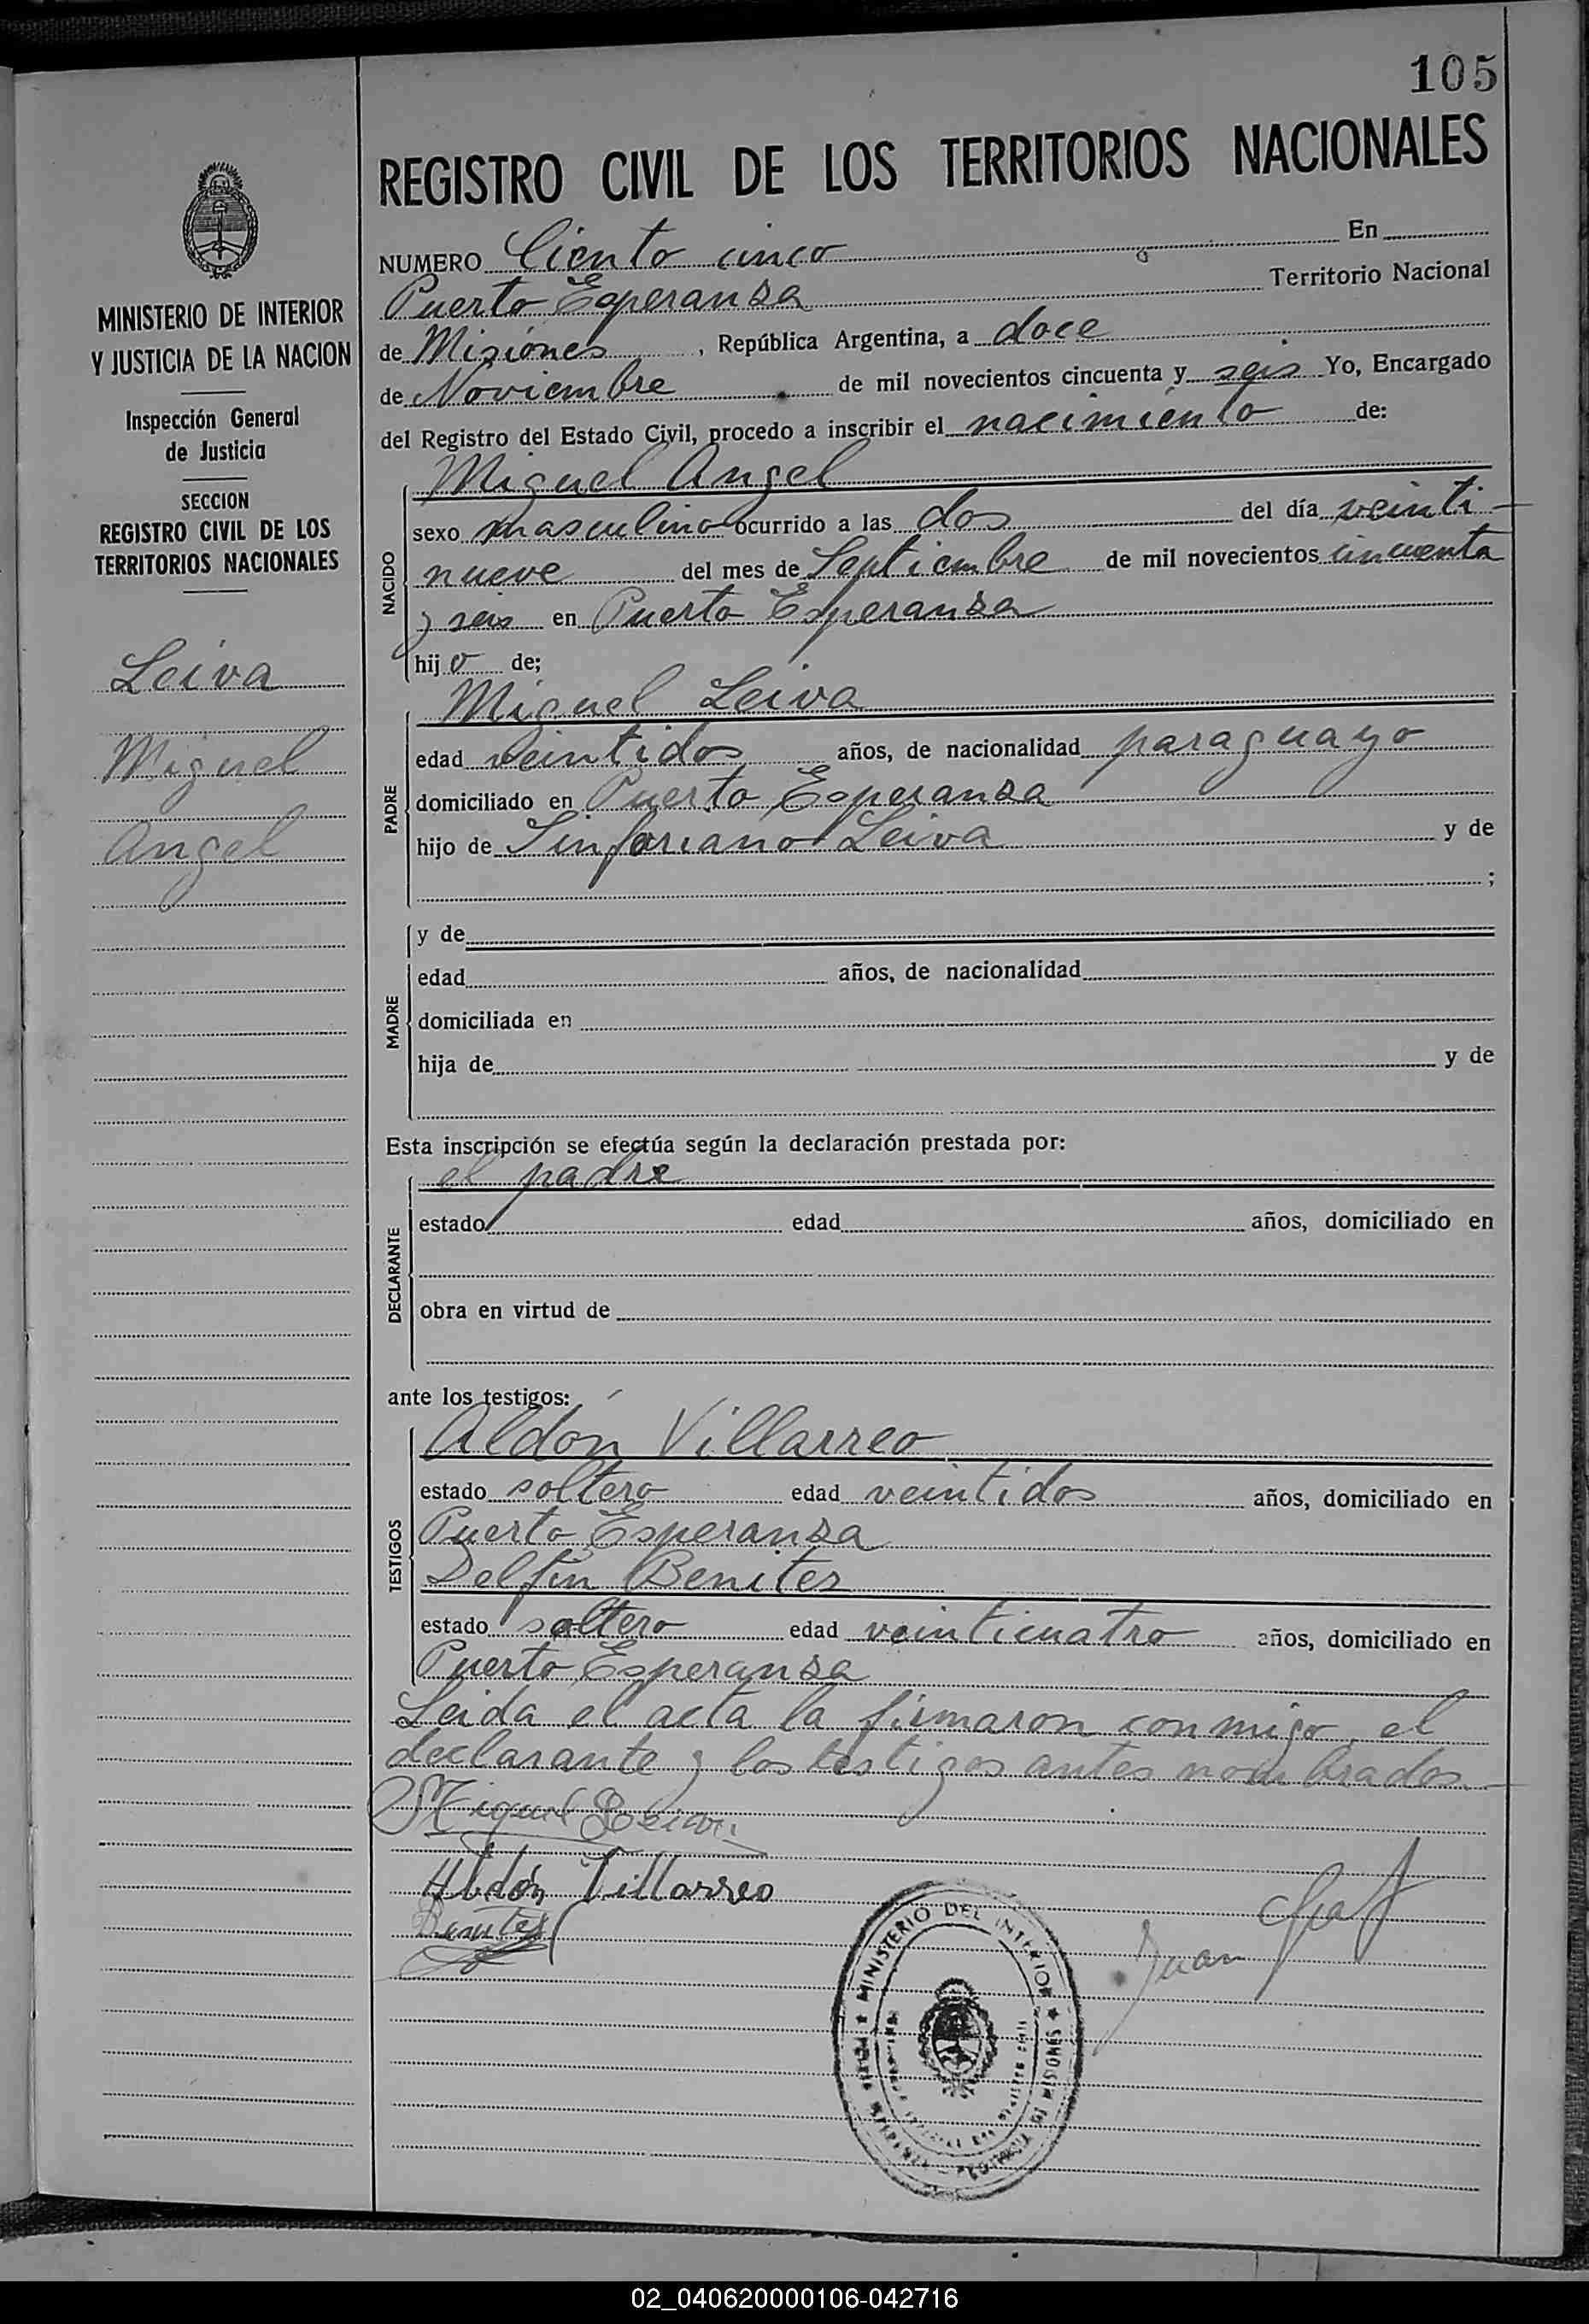 105
REGISTRO CIVIL DE LOS TERRITORIOS NACIONALES
MINISTERIO DE INTERIOR
Y JUSTICIA DE LA NACION
Inspección General
de Justicia
SECCION
REGISTRO CIVIL DE LOS
TERRITORIOS NACIONALES
Leiva
Miguel
Angel
NUMERO Ciento cinco En
Puerto Esperanza Territorio Nacional
de Misiones, República Argentina, a doce
de Noviembre de mil novecientos cincuenta y seis Yo, Encargado
del Registro del Estado Civil, procedo a inscribir el nacimiento de:
NACIDO
Miguel Angel
sexo masculino ocurrido a las dos del día veinti-
nueve del mes de Septiembre de mil novecientos cincuenta
y seis en Puerto Esperanza
hijo de;
PADRE
Miguel Leiva
edad veintidos años, de nacionalidad paraguayo
domiciliado en Puerto Esperanza
hijo de Sinforiano Leiva y de
;
MADRE
y de
edad años, de nacionalidad
domiciliada en
hija de y de
Esta inscripción se efectúa según la declaración prestada por:
DECLARANTE
el padre
estado edad años, domiciliado en
obra en virtud de
ante los testigos:
TESTIGOS
Aldón Villarreo
estado soltero edad veintidos años, domiciliado en
Puerto Esperanza
Delfin Benitez
estado soltero edad veinticuatro años, domiciliado en
Puerto Esperanza
Leida el acta la firmaron conmigo, el
declarante y los testigos antes nombrados-
Miguel Leiva
Abdón Villarreo
Benitez
Juan
MINISTERIO DEL INTERIOR
MISIONES
02_040620000106-042716